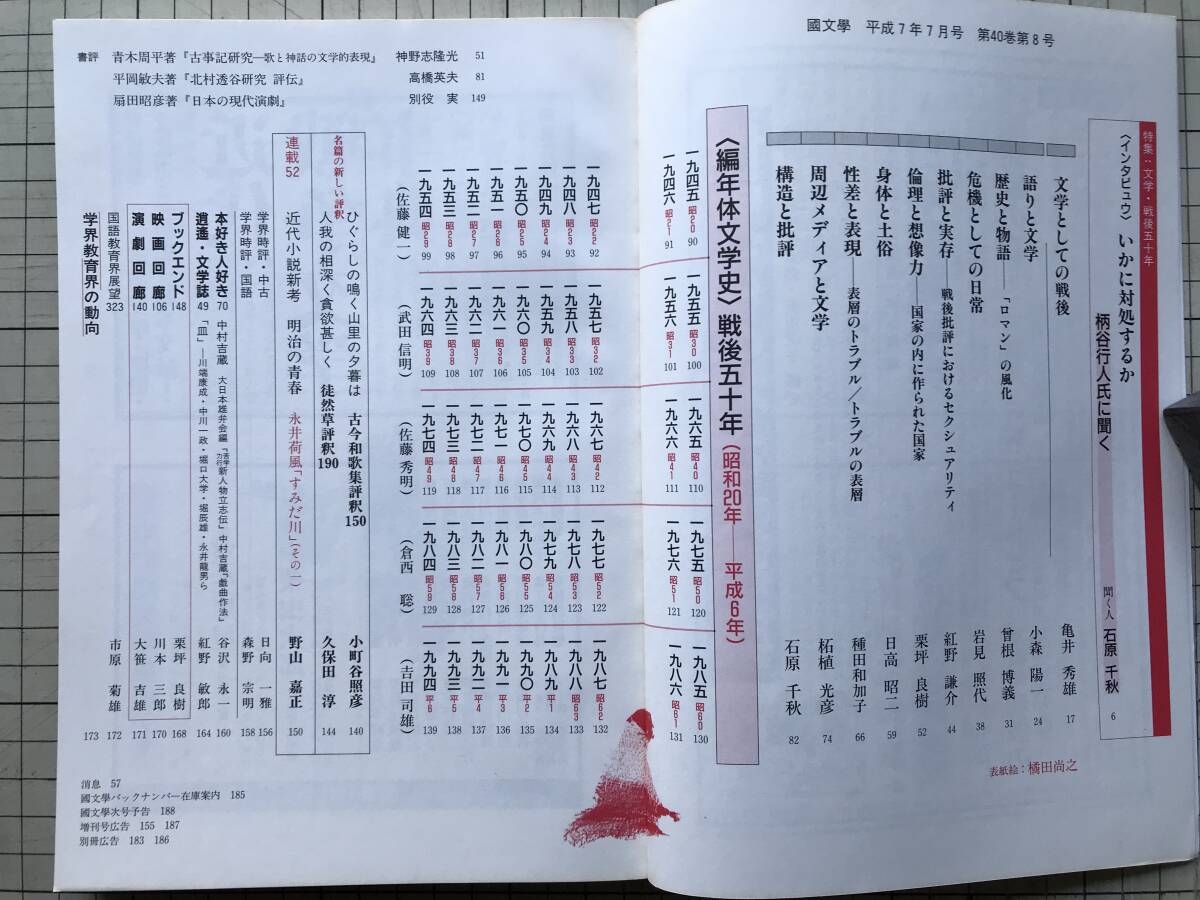 國文學 平成7年7月号 第40巻第8号
特集:文学・戦後五十年
〈インタビュウ〉いかに対処するか
柄谷行人氏に聞く 聞く人 石原 千秋 6
文学としての戦後 亀井 秀雄 17
語りと文学 小森 陽一 24
歴史と物語――「ロマン」の風化 曾根 博義 31
危機としての日常 岩見 照代 38
批評と実存 戦後批評におけるセクシュアリティ 紅野 謙介 44
倫理と想像力――国家の内に作られた国家 栗坪 良樹 52
身体と土俗 日高 昭二 59
性差と表現――表層のトラブル/トラブルの表層 種田和加子 66
周辺メディアと文学 柘植 光彦 74
構造と批評 石原 千秋 82
表紙絵:橘田尚之
〈編年体文学史〉戦後五十年(昭和20年――平成6年)
一九四五 昭20 90
一九四六 昭21 91
一九四七 昭22 92
一九四八 昭23 93
一九四九 昭24 94
一九五〇 昭25 95
一九五一 昭26 96
一九五二 昭27 97
一九五三 昭28 98
一九五四 昭29 99
(佐藤 健一)
一九五五 昭30 100
一九五六 昭31 101
一九五七 昭32 102
一九五八 昭33 103
一九五九 昭34 104
一九六〇 昭35 105
一九六一 昭36 106
一九六二 昭37 107
一九六三 昭38 108
一九六四 昭39 109
(武田 信明)
一九六五 昭40 110
一九六六 昭41 111
一九六七 昭42 112
一九六八 昭43 113
一九六九 昭44 114
一九七〇 昭45 115
一九七一 昭46 116
一九七二 昭47 117
一九七三 昭48 118
一九七四 昭49 119
(佐藤 秀明)
一九七五 昭50 120
一九七六 昭51 121
一九七七 昭52 122
一九七八 昭53 123
一九七九 昭54 124
一九八〇 昭55 125
一九八一 昭56 126
一九八二 昭57 127
一九八三 昭58 128
一九八四 昭59 129
(倉西 聡)
一九八五 昭60 130
一九八六 昭61 131
一九八七 昭62 132
一九八八 昭63 133
一九八九 平1 134
一九九〇 平2 135
一九九一 平3 136
一九九二 平4 137
一九九三 平5 138
一九九四 平6 139
(吉田 司雄)
書評 青木周平著『古事記研究―歌と神話の文学的表現』 神野志隆光 51
平岡敏夫著『北村透谷研究 評伝』 高橋英夫 81
扇田昭彦著『日本の現代演劇』 別役 実 149
名篇の新しい評釈
ひぐらしの鳴く山里の夕暮は 古今和歌集評釈150 小町谷照彦 140
人我の相深く貪欲甚しく 徒然草評釈190 久保田 淳 144
連載52 近代小説新考 明治の青春 永井荷風「すみだ川」(その一) 野山 嘉正 150
学界時評・中古 日向 一雅 156
学界時評・国語 森野 宗明 158
本好き人好き70 中村吉蔵 大日本雄弁会編『苦学力行新人物立志伝』中村吉蔵『戯曲作法』 谷沢 永一 160
逍遙・文学誌49 「皿」―川端康成・中川一政・堀口大学・堀辰雄・永井龍男ら 紅野 敏郎 164
ブックエンド148 栗坪 良樹 168
映画回廊106 川本 三郎 170
演劇回廊140 大笹 吉雄 171
国語教育界展望323 市原 菊雄 172
学界教育界の動向 173
消息 57
國文學バックナンバー在庫案内 185
國文學次号予告 188
増刊号広告 155 187
別冊広告 183 186